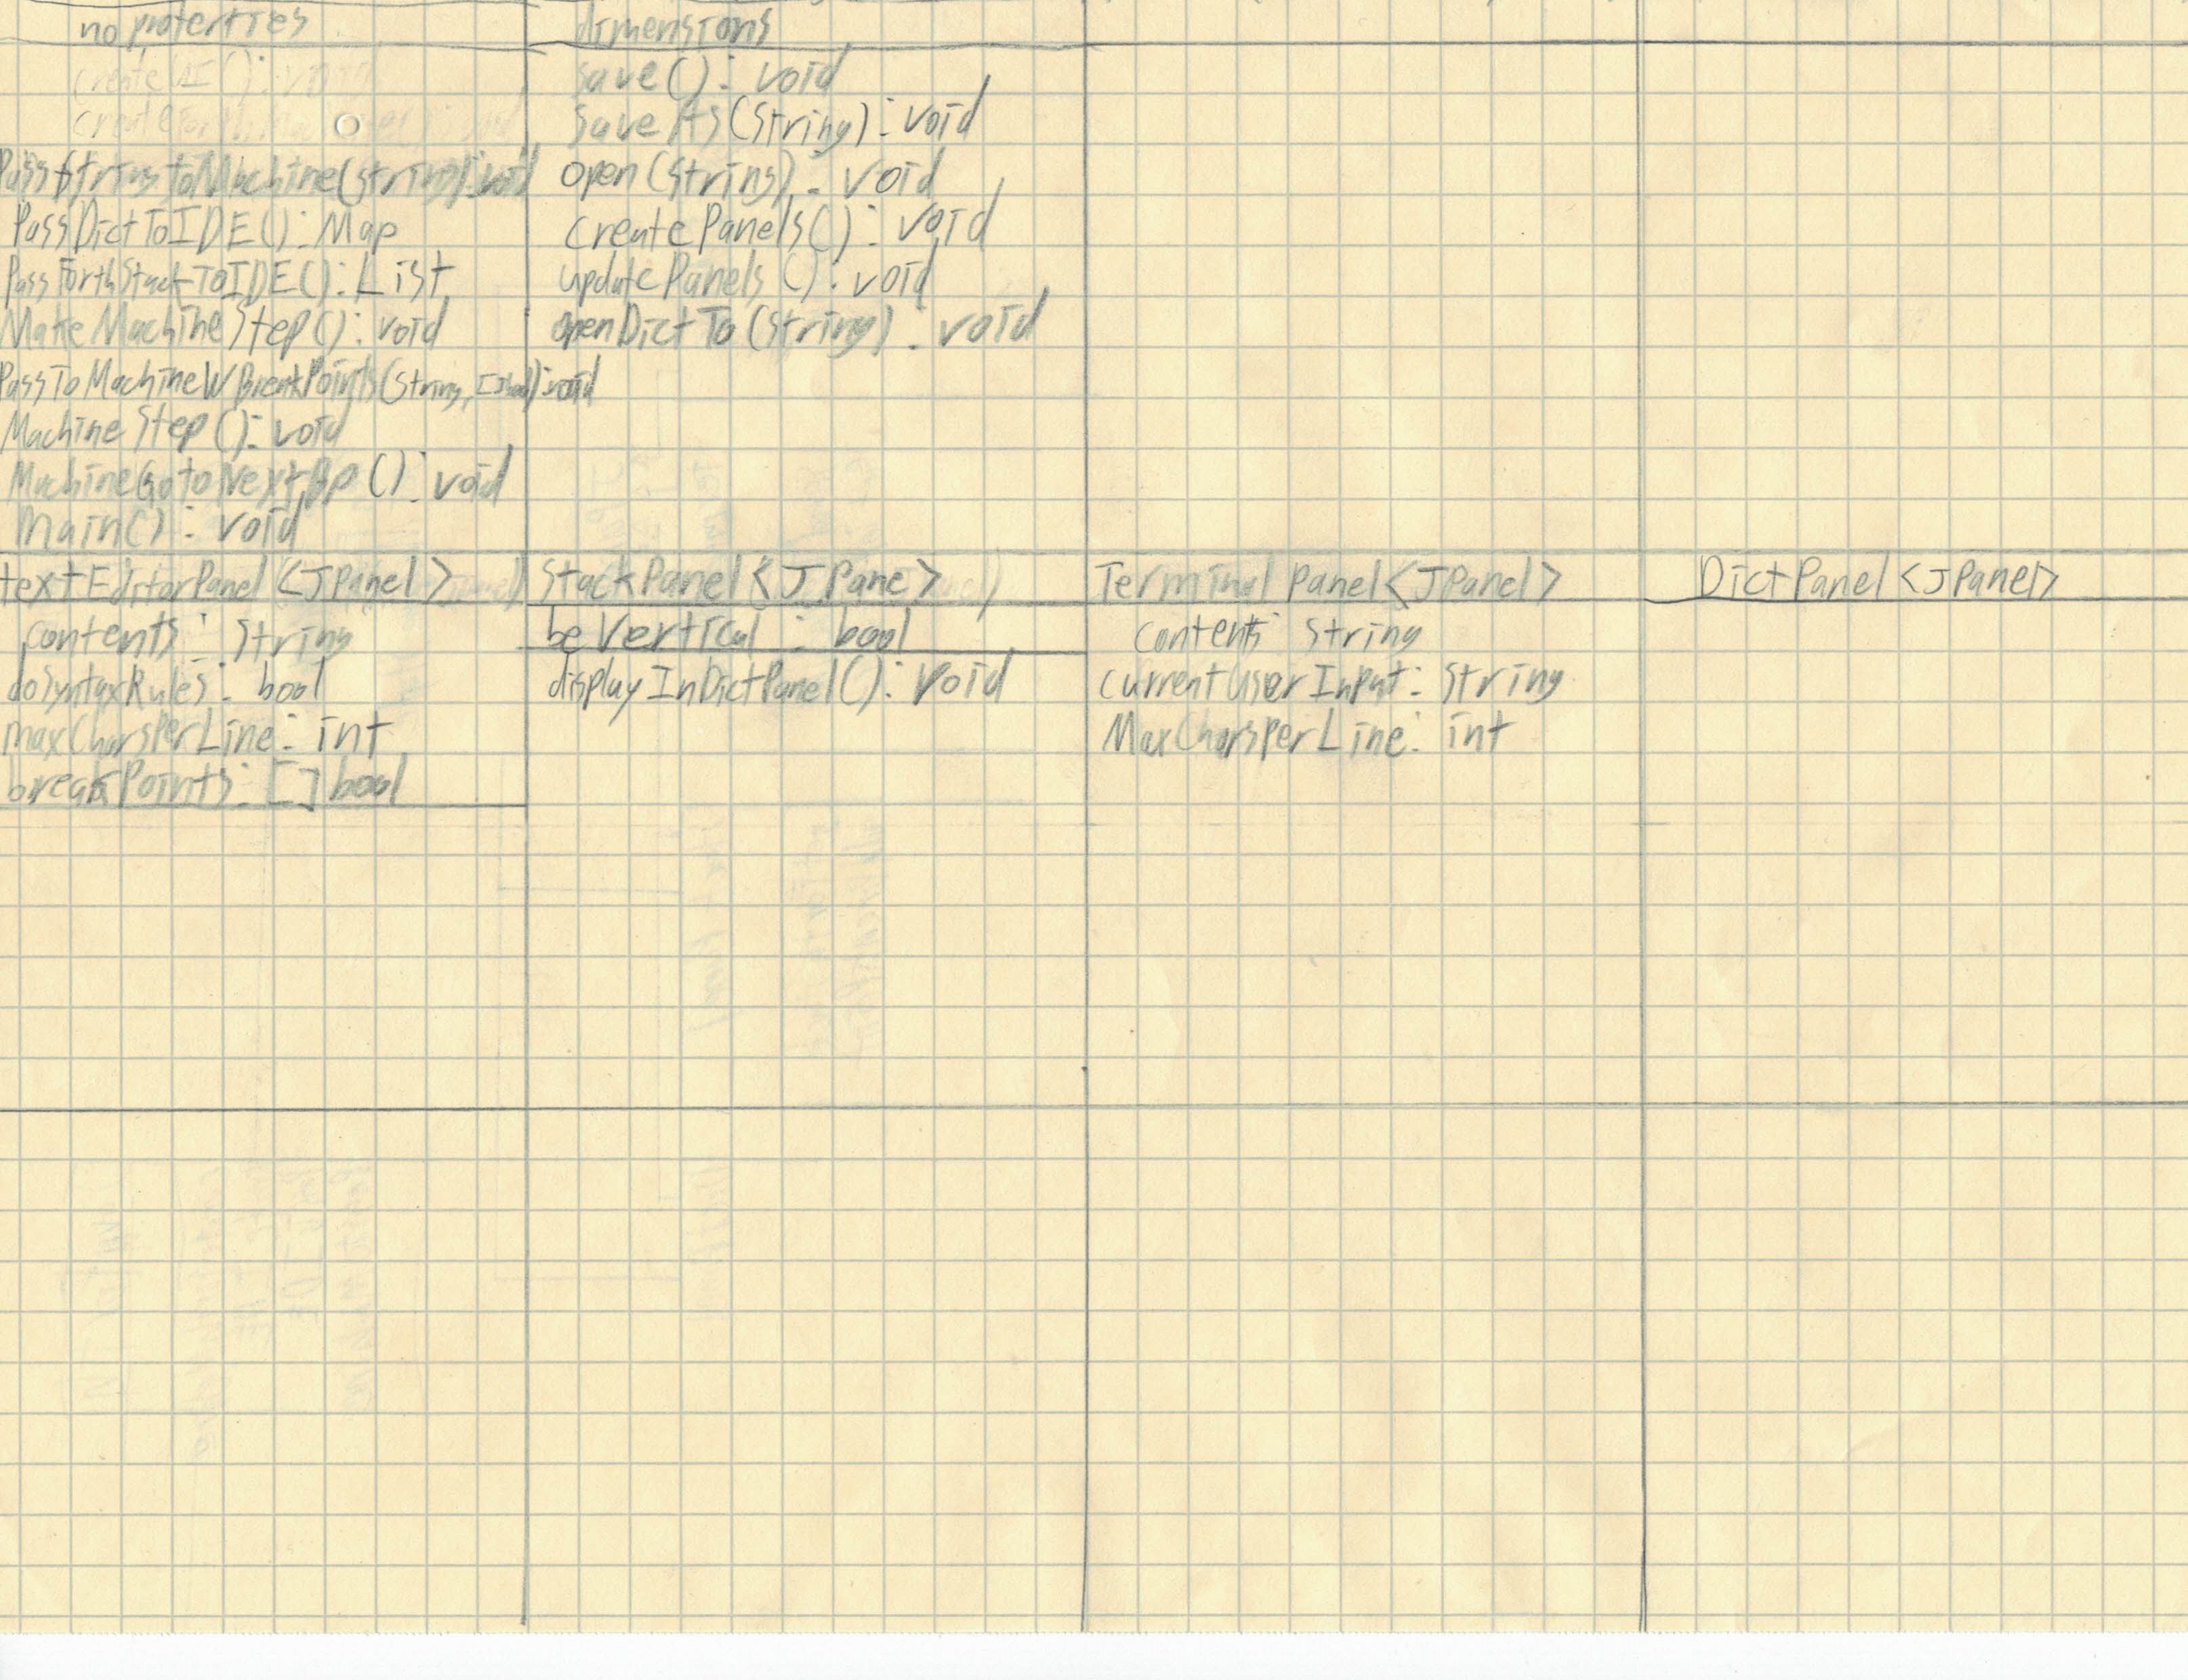 no properties
createUI(): void
PassStringtoMachine(string): void
PassDictToIDE(): Map
PassForthStackToIDE(): List
MakeMachineStep(): void
PassToMachineWBreakPoints(String, []bool): void
MachineStep(): void
MachineGotoNextBp(): void
Main(): void
dimensions
save(): void
saveAs(String): void
open(String): void
createPanels(): void
updatePanels(): void
openDictTo(String): void
textEditorPanel <JPanel>
contents: String
doSyntaxRules: bool
maxCharsPerLine: int
breakPoints: []bool
StackPanel <JPane>
beVertical: bool
displayInDictPanel(): void
Terminal panel <JPanel>
contents: String
currentUserInput: String
MaxCharsPerLine: int
DictPanel <JPanel>